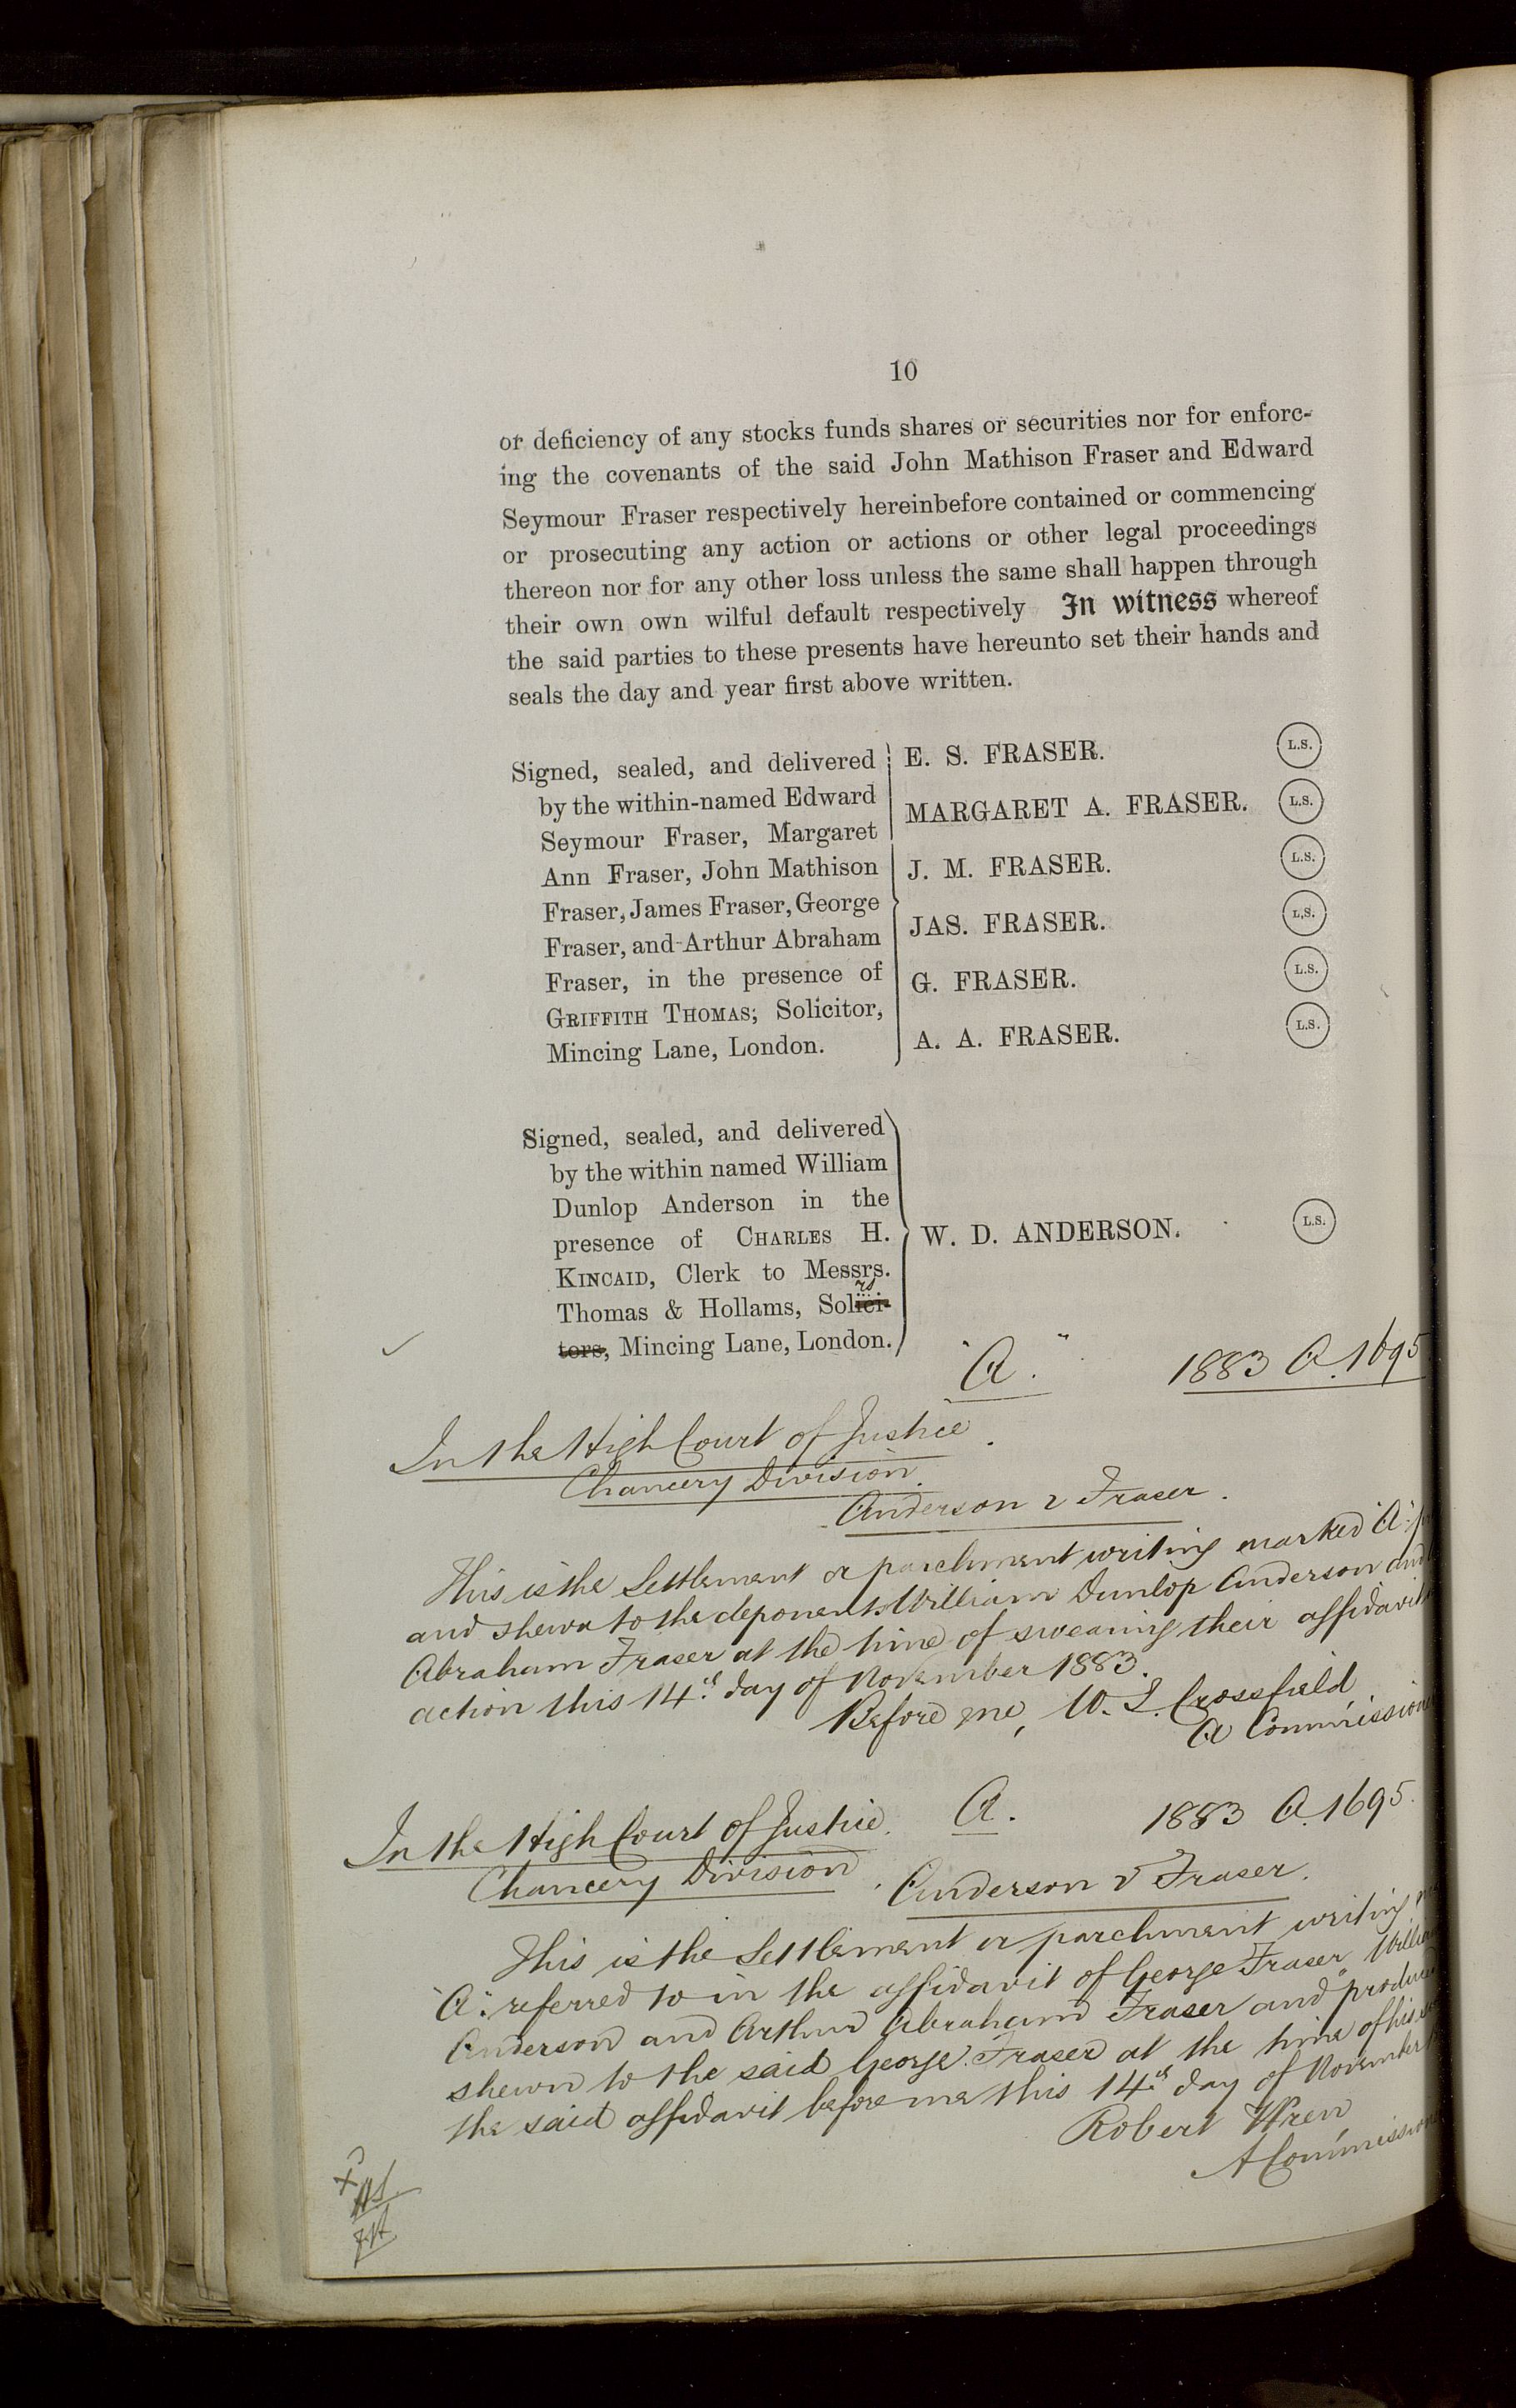 10
or deficiency of any stocks funds shares or securities nor for enforc-
ing the covenants of the said John Mathison Fraser and Edward
Seymour Fraser respectively hereinbefore contained or commencing
or prosecuting any action or actions or other legal proceedings
thereon nor for any other loss unless the same shall happen through
their own own wilful default respectively In witness whereof
the said parties to these presents have hereunto set their hands and
seals the day and year first above written.
Signed, sealed, and delivered
by the within-named Edward
Seymour Fraser, Margaret
Ann Fraser, John Mathison
Fraser, James Fraser, George
Fraser, and Arthur Abraham
Fraser, in the presence of
GRIFFITH THOMAS, Solicitor,
Mincing Lane, London.
E. S. FRASER. L.S.
MARGARET A. FRASER. L.S.
J. M. FRASER. L.S.
JAS. FRASER. L.S.
G. FRASER. L.S.
A. A. FRASER. L.S.
Signed, sealed, and delivered
by the within named William
Dunlop Anderson in the
presence of CHARLES H.
KINCAID, Clerk to Messrs.
Thomas & Hollams, Solici-
tors, Mincing Lane, London.
W. D. ANDERSON. L.S.
"A." 1883 A. 1695
In the High Court of Justice.
Chancery Division.
Anderson v Fraser.
This is the Settlement or parchment writing marked "A"
and shewn to the deponents William Dunlop Anderson and
Abraham Fraser at the time of swearing their affidavit
action this 14th day of November 1883.
Before me, W. S. Crossfield
A Commissioner
In the High Court of Justice. A. 1883 A. 1695.
Chancery Division. Anderson v Fraser.
This is the Settlement or parchment writing
"A" referred to in the affidavit of George Fraser, William
Anderson and Arthur Abraham Fraser and produced
shewn to the said George Fraser at the time of his
the said affidavit before me this 14th day of November
Robert Wren
A Commissioner